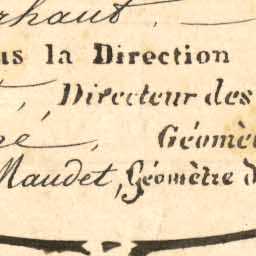 rhaut.
us la Direction
, Directeur des
é, Géomè
Maudet, Géomètre d